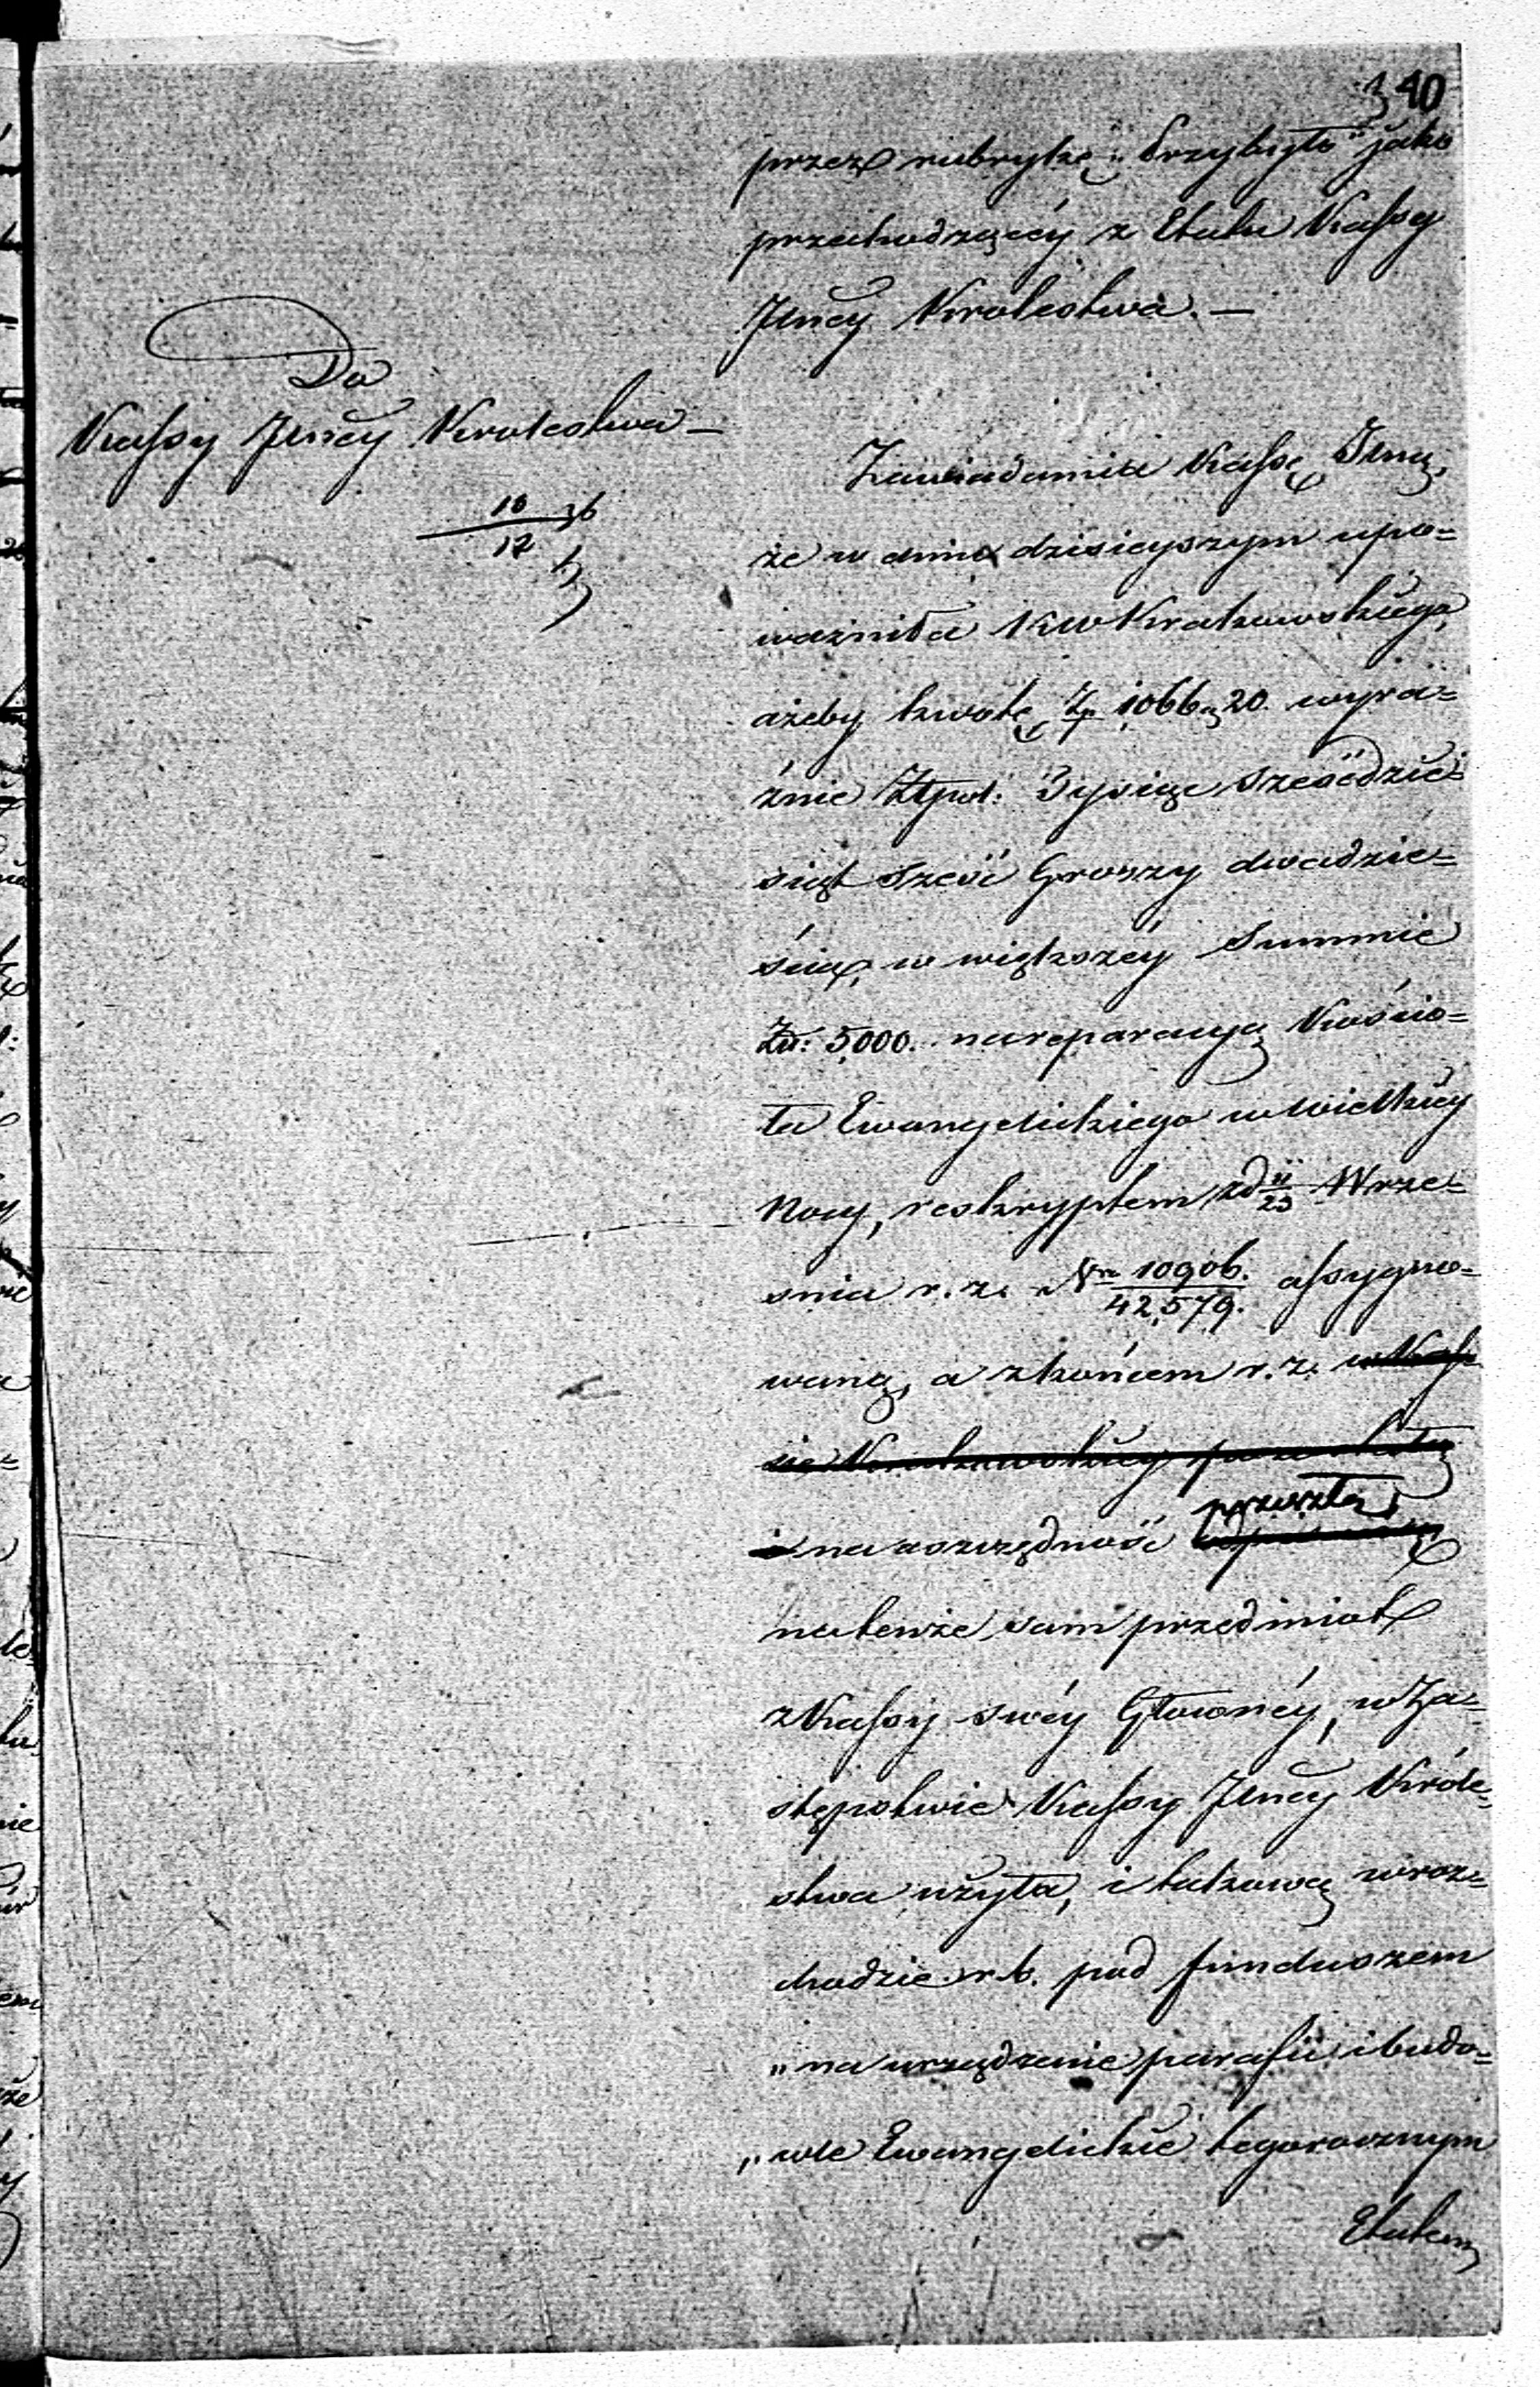 40
przez rubrykę „Przybyło" jako
przechodzącéy z Etatu Kassy
Jlnéy Krolestwa. —
Do
Kassy Jlnéy Krolestwa —
18
12
Zawiadamia Kassę Jlną,
że w dniu dzisieyszym upo=
ważniła KW Krakowskiego,
ażeby kwotę Zp 1066 „ 20. wyra=
źnie Złpol: Tysiąc sześćdzie=
siąt sześć Groszy dwadzie=
ścia, w większéy Summie
Złt: 5,000. na reparacyą Kościo=
ła Ewangelickiego w Wielkiey
Nocy, reskryptem z d 11/23 Wrze=
śnia r. z. Nro 10906./42,579. assygno=
waną, a z końcem r. z. w Kas
sie Krakowskiey pozostałą
i na oszczędność przeszłą,
na tenże sam przedmiot
z Kassy swéy Głównéy, w Za=
stępstwie Kassy Jlnéy Króle=
stwa użyła, i takową w roz=
chodzie r. b. pod funduszem
„na urządzenie parafii i budo=
„wle Ewangelickie tegorocznym
Etatem